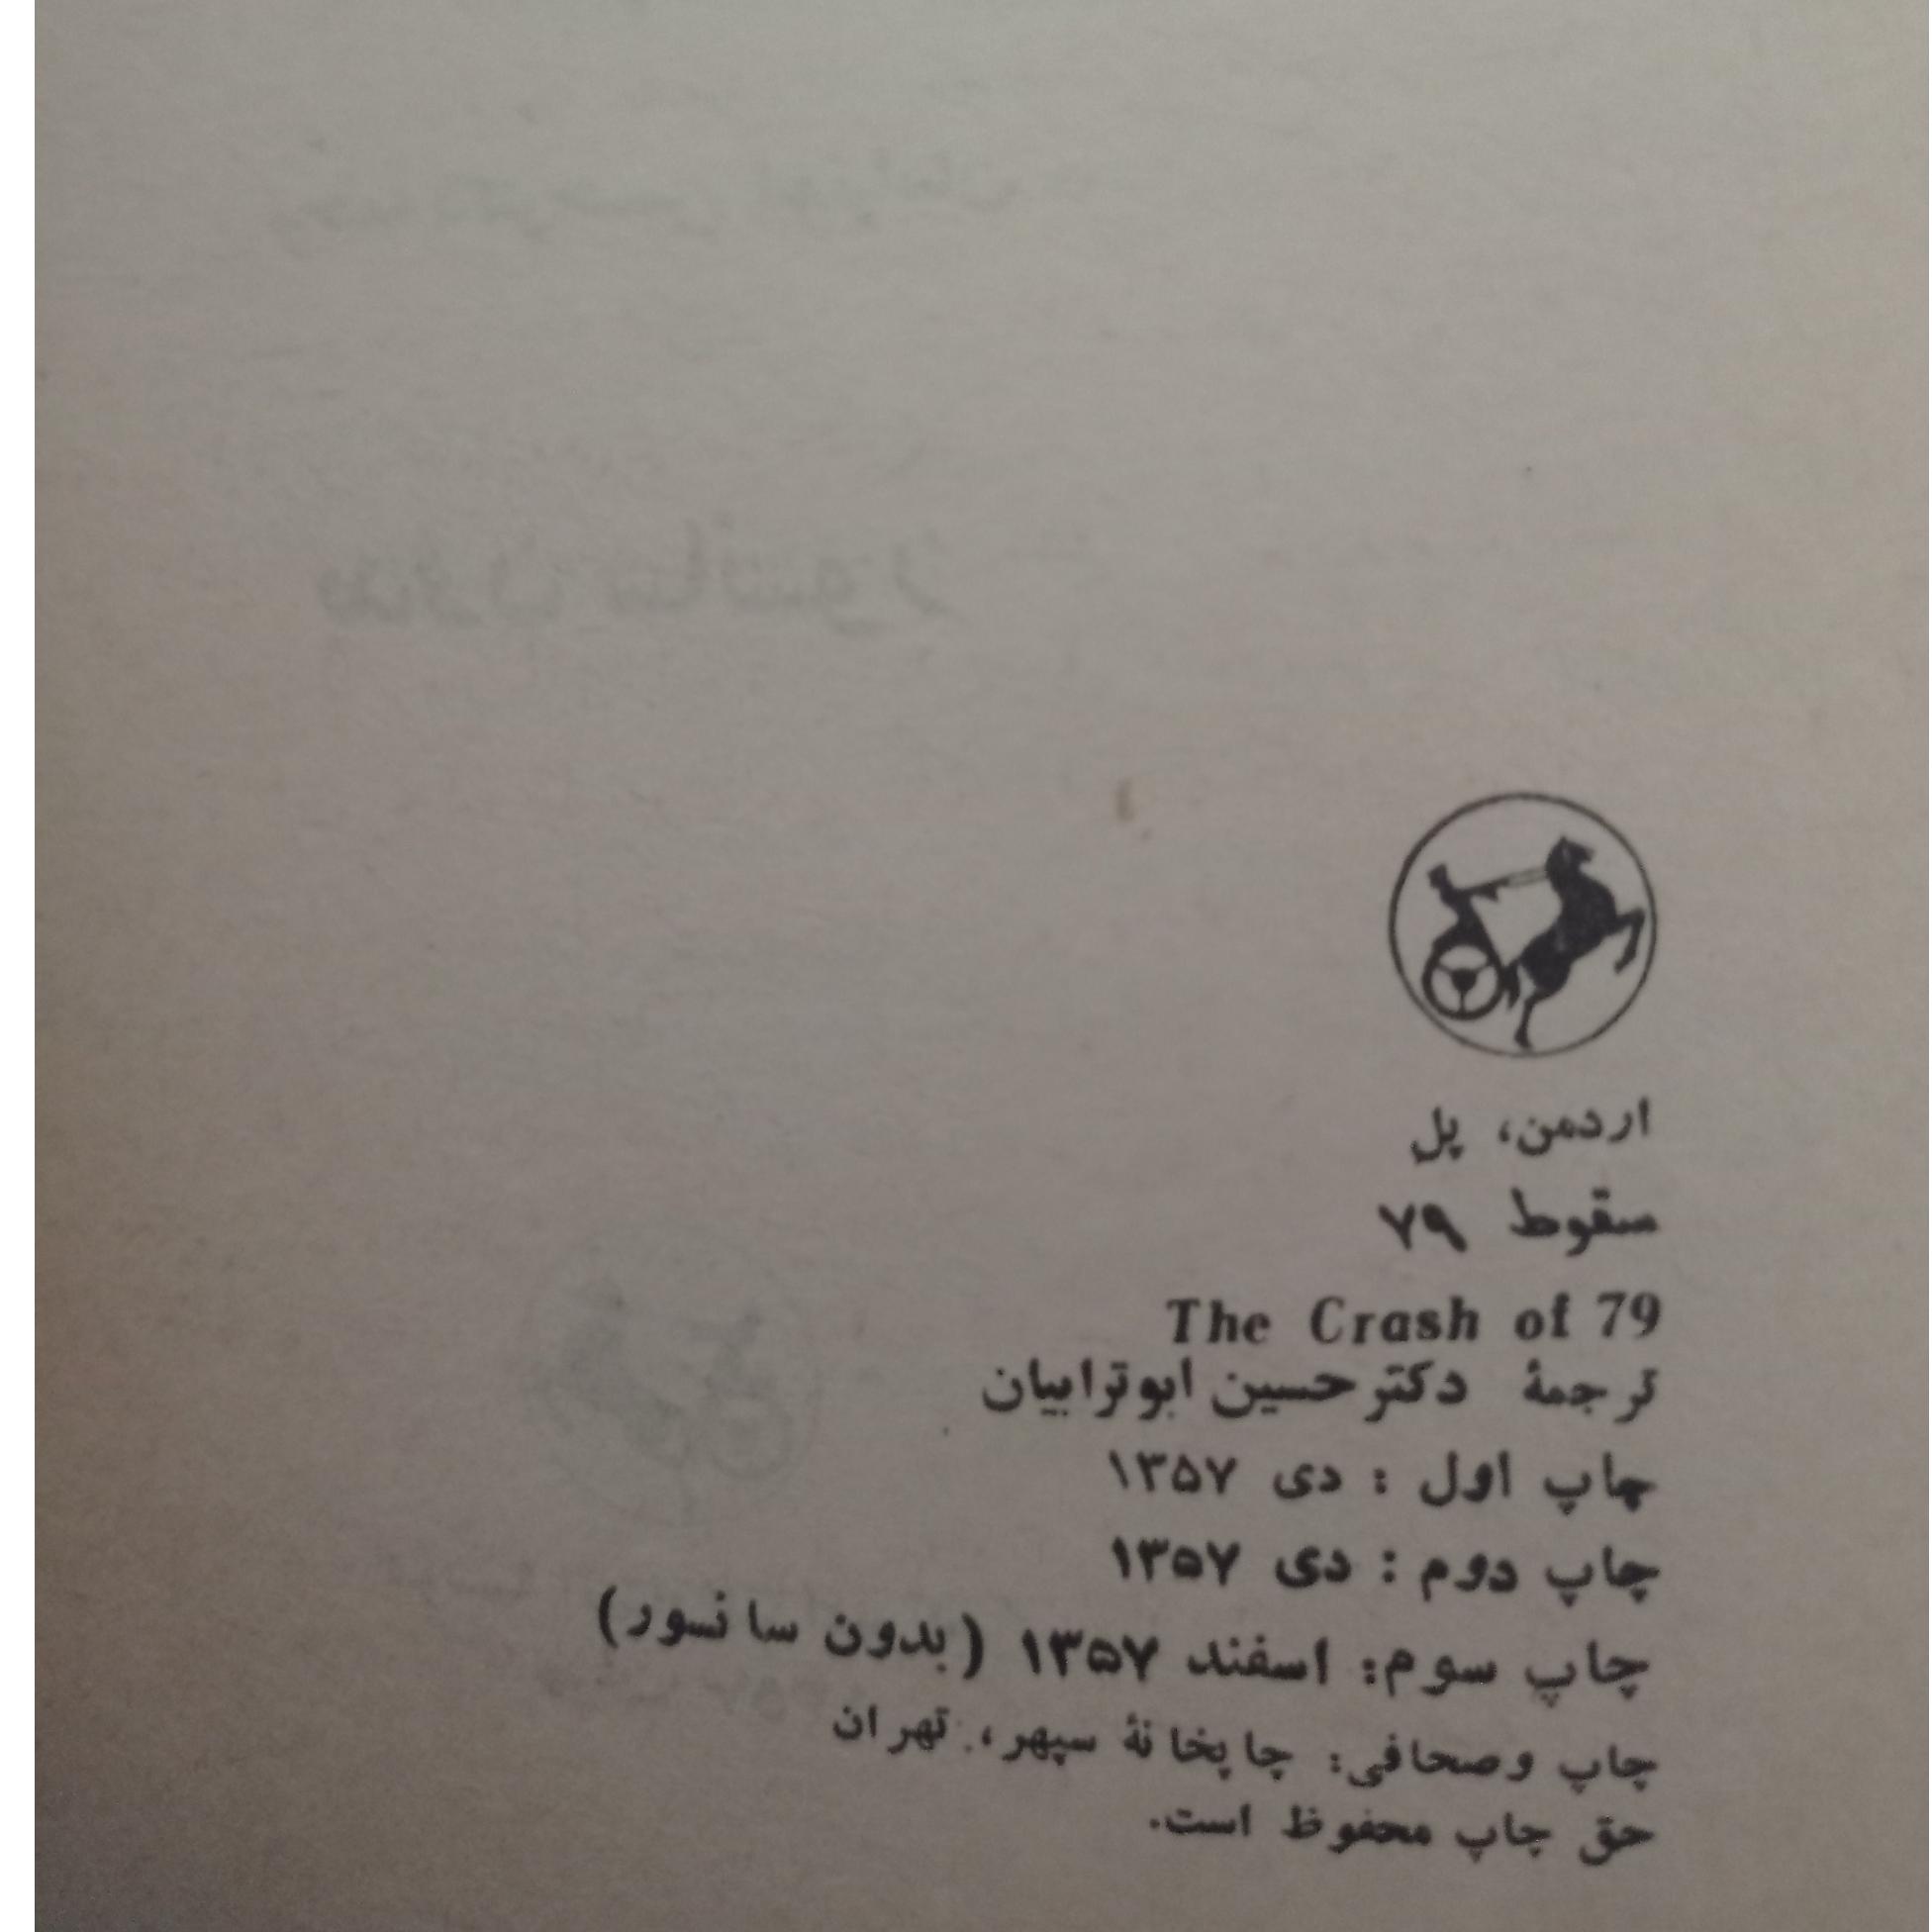 اردمن، پل
سقوط ۷۹
The Crash of 79
ترجمهٔ دکتر حسین ابوترابیان
چاپ اول : دی ۱۳۵۷
چاپ دوم : دی ۱۳۵۷
چاپ سوم: اسفند ۱۳۵۷ (بدون سانسور)
چاپ وصحافی: چاپخانهٔ سپهر، تهران
حق چاپ محفوظ است.